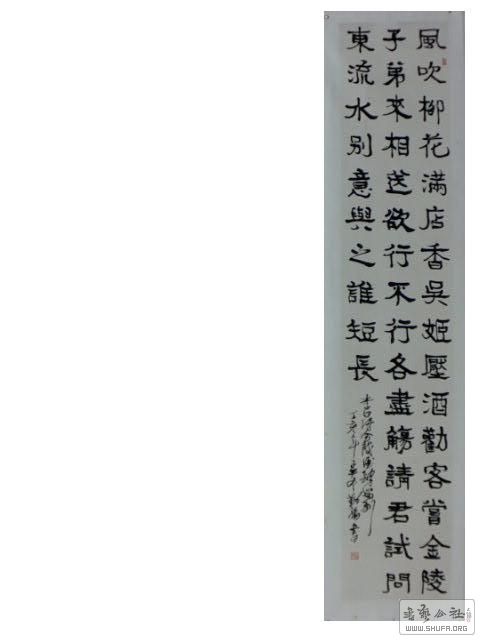 風吹柳花滿店香吳姬壓酒勸客嘗金陵
子弟來相送欲行不行各盡觴請君試問
東流水別意與之誰短長
李白詩金陵酒肆留別
書藝公社
WWW.SHUFA.ORG